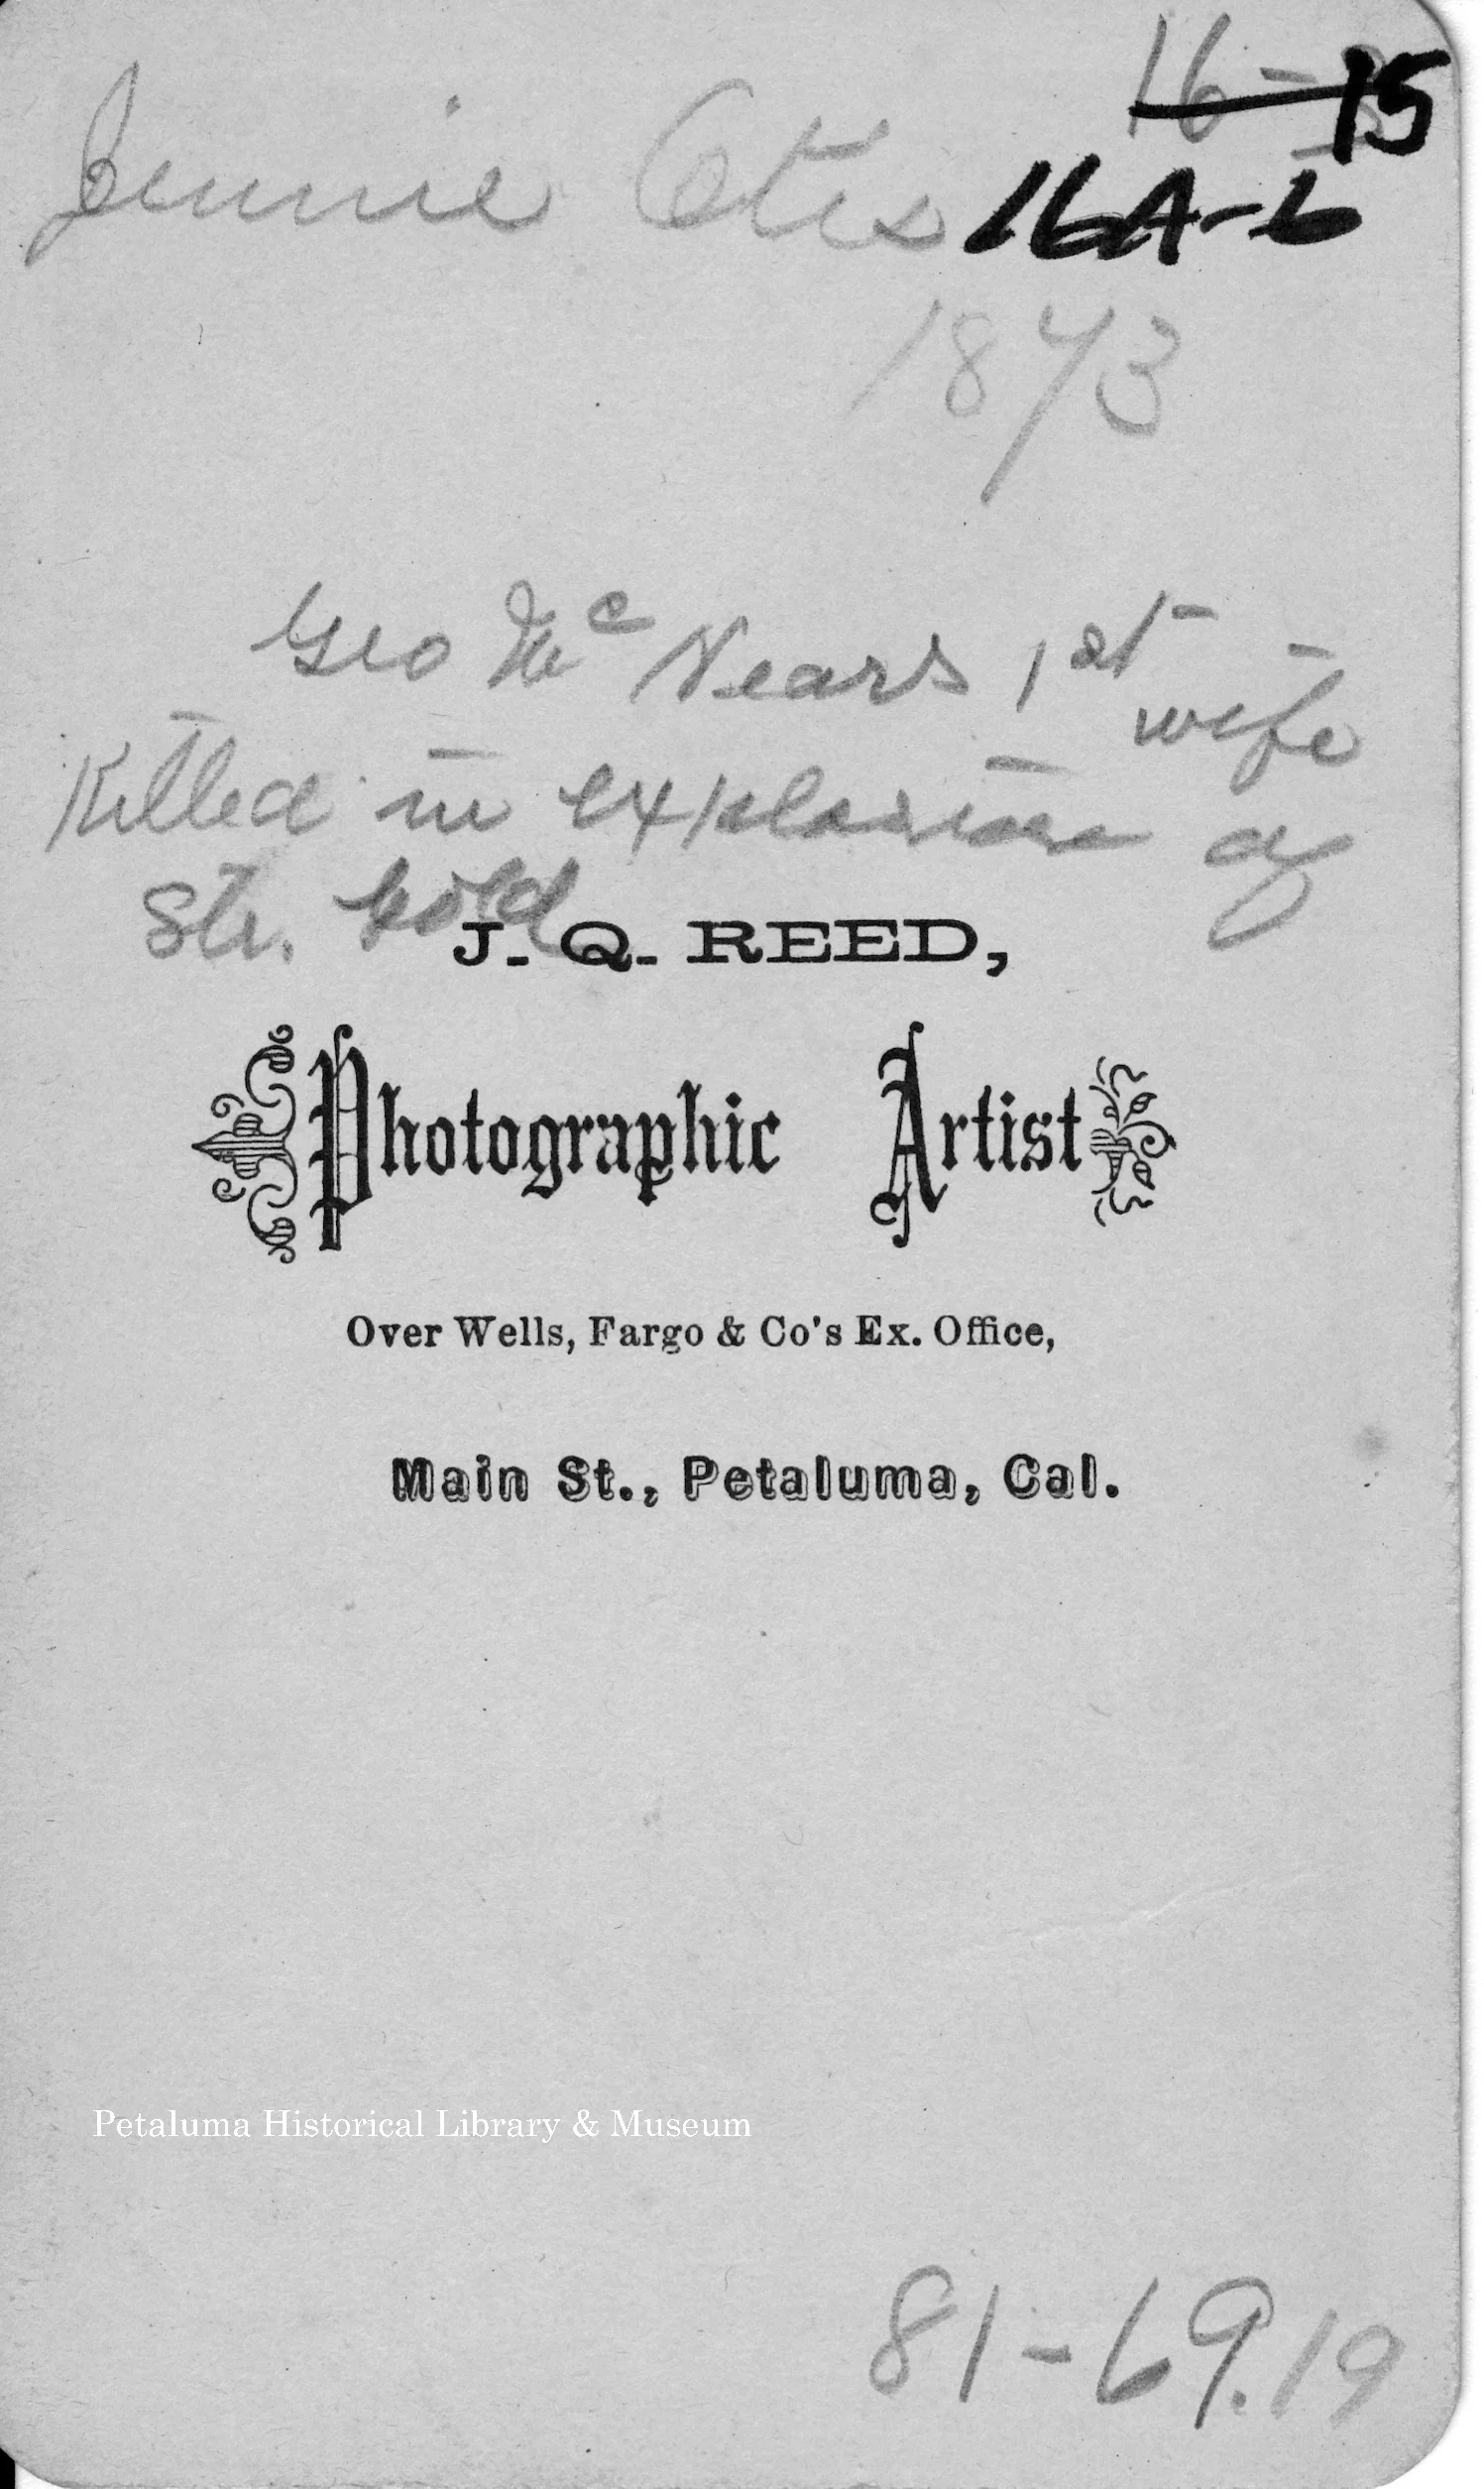 Jennie Otis
16-
15
16A-6
1873
Geo Mc Nears 1st
wife
Killed in explosion of
Str. Gold
J. Q. REED,
Photographic Artist
Over Wells, Fargo & Co's Ex. Office,
Main St., Petaluma, Cal.
Petaluma Historical Library & Museum
81-69.19